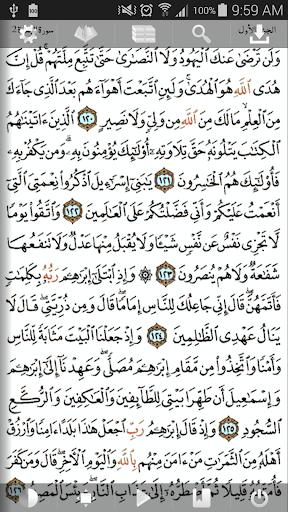 9:59 AM
الجزء الأول
سورة
وَلَن تَرْضَىٰ عَنكَ ٱلْيَهُودُ وَلَا ٱلنَّصَٰرَىٰ حَتَّىٰ تَتَّبِعَ مِلَّتَهُمْ ۗ قُلْ إِنَّ
هُدَى ٱللَّهِ هُوَ ٱلْهُدَىٰ ۗ وَلَئِنِ ٱتَّبَعْتَ أَهْوَآءَهُم بَعْدَ ٱلَّذِى جَآءَكَ
مِنَ ٱلْعِلْمِ ۙ مَا لَكَ مِنَ ٱللَّهِ مِن وَلِىٍّ وَلَا نَصِيرٍ ١٢٠ ٱلَّذِينَ ءَاتَيْنَٰهُمُ
ٱلْكِتَٰبَ يَتْلُونَهُۥ حَقَّ تِلَاوَتِهِۦٓ أُو۟لَٰٓئِكَ يُؤْمِنُونَ بِهِۦ ۗ وَمَن يَكْفُرْ بِهِۦ
فَأُو۟لَٰٓئِكَ هُمُ ٱلْخَٰسِرُونَ ١٢١ يَٰبَنِىٓ إِسْرَٰٓءِيلَ ٱذْكُرُوا۟ نِعْمَتِىَ ٱلَّتِىٓ
أَنْعَمْتُ عَلَيْكُمْ وَأَنِّى فَضَّلْتُكُمْ عَلَى ٱلْعَٰلَمِينَ ١٢٢ وَٱتَّقُوا۟ يَوْمًا
لَّا تَجْزِى نَفْسٌ عَن نَّفْسٍ شَيْـًٔا وَلَا يُقْبَلُ مِنْهَا عَدْلٌ وَلَا تَنفَعُهَا
شَفَٰعَةٌ وَلَا هُمْ يُنصَرُونَ ١٢٣ ۞ وَإِذِ ٱبْتَلَىٰٓ إِبْرَٰهِۦمَ رَبُّهُۥ بِكَلِمَٰتٍ
فَأَتَمَّهُنَّ ۖ قَالَ إِنِّى جَاعِلُكَ لِلنَّاسِ إِمَامًا ۖ قَالَ وَمِن ذُرِّيَّتِى ۖ قَالَ لَا
يَنَالُ عَهْدِى ٱلظَّٰلِمِينَ ١٢٤ وَإِذْ جَعَلْنَا ٱلْبَيْتَ مَثَابَةً لِّلنَّاسِ
وَأَمْنًا وَٱتَّخِذُوا۟ مِن مَّقَامِ إِبْرَٰهِۦمَ مُصَلًّى ۖ وَعَهِدْنَآ إِلَىٰٓ إِبْرَٰهِۦمَ
وَإِسْمَٰعِيلَ أَن طَهِّرَا بَيْتِىَ لِلطَّآئِفِينَ وَٱلْعَٰكِفِينَ وَٱلرُّكَّعِ
ٱلسُّجُودِ ١٢٥ وَإِذْ قَالَ إِبْرَٰهِۦمُ رَبِّ ٱجْعَلْ هَٰذَا بَلَدًا ءَامِنًا وَٱرْزُقْ
أَهْلَهُۥ مِنَ ٱلثَّمَرَٰتِ مَنْ ءَامَنَ مِنْهُم بِٱللَّهِ وَٱلْيَوْمِ ٱلْءَاخِرِ ۖ قَالَ وَمَن كَفَرَ
فَأُمَتِّعُهُۥ قَلِيلًا ثُمَّ أَضْطَرُّهُۥٓ إِلَىٰ عَذَابِ ٱلنَّارِ ۖ وَبِئْسَ ٱلْمَصِيرُ ١٢٦